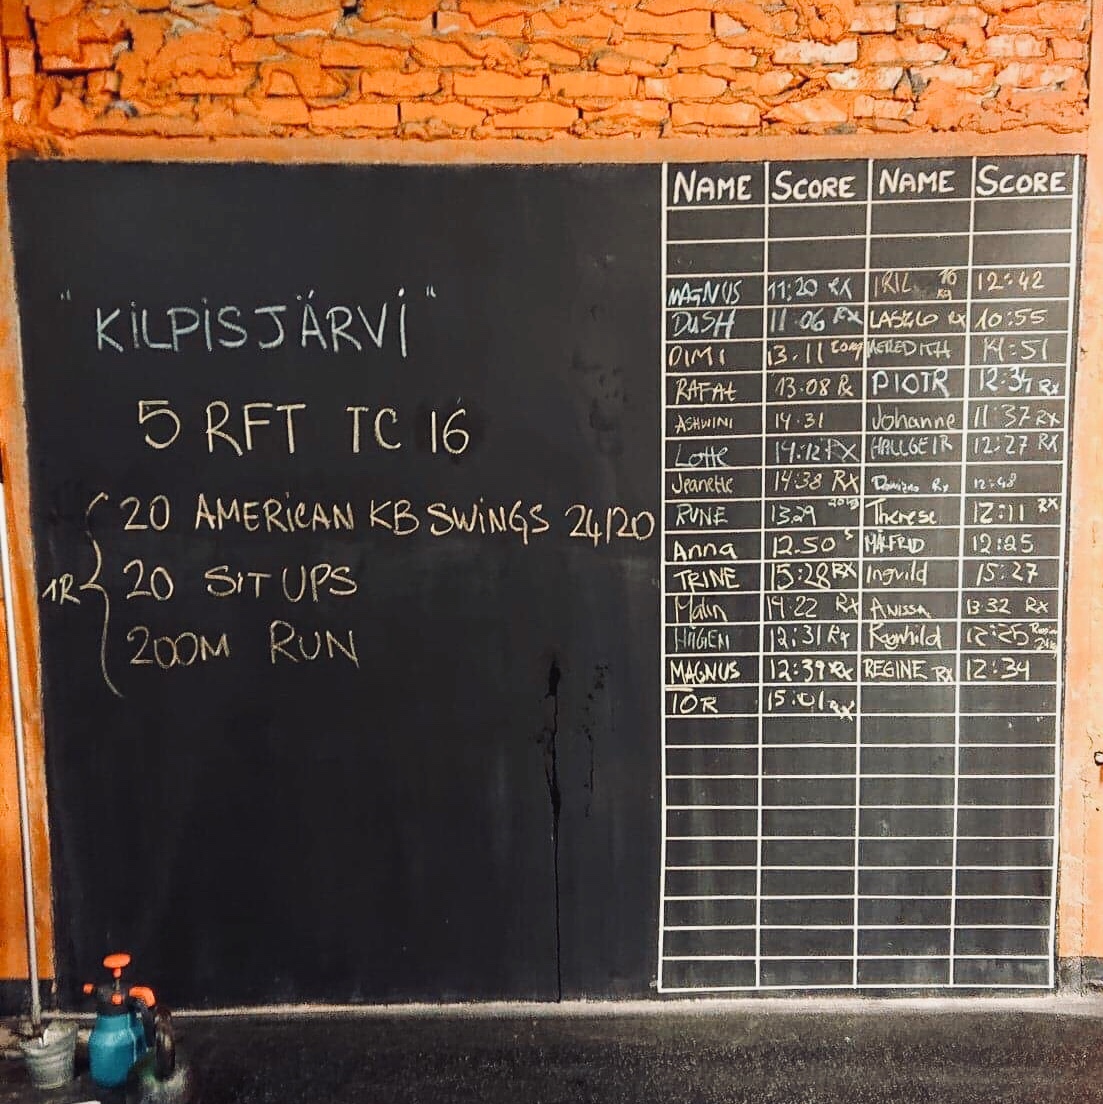 NAME SCORE NAME SCORE
"KILPISJÄRVI"
5 RFT TC 16
20 AMERICAN KB SWINGS 24/20
1R 20 SIT UPS
200M RUN
MAGNUS 11:20 RX IRIL 16 kg 12:42
DUSH 11 06 RX LASZLO RX 10:55
DIMI 13.11 MEREDITH 14:51
RAFAŁ 13.08 Rx PIOTR 12:34 Rx
ASHWINI 14.31 Johanne 11:37 RX
Lotte 14:12 RX HALLGEIR 12:27 RX
Jeanette 14:38 RX Rx 12:48
RUNE 13:29 20kg Therese 12:11 RX
Anna 12.50 MALFRID 12:25
TRINE 15:28 RX Ingvild 15:27
Malin 14:22 RX ANISSA 13 32 RX
12:31 Rx Ragnhild 12:25
MAGNUS 12:39 Rx REGINE Rx 12:34
TOR 15:01 Rx